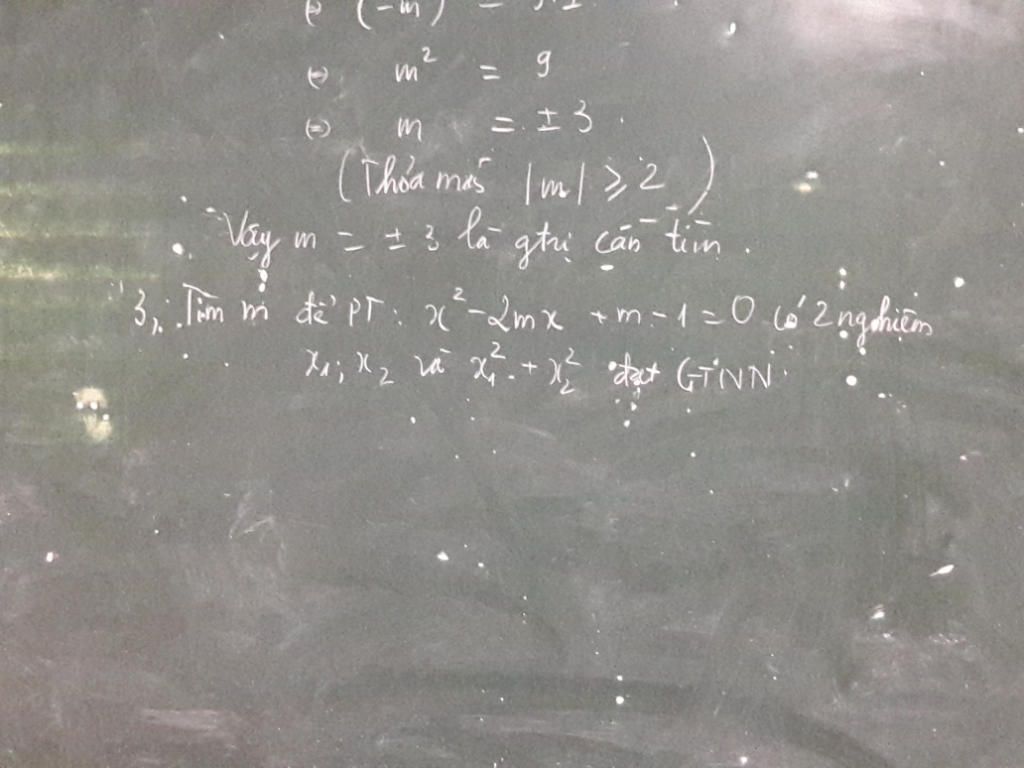 (=) (-m)
(=) m² = 9
(=) m = ± 3.
(Thỏa mãn |m| ≥ 2)
Vậy m = ± 3 là gtrị cần tìm.
3, Tìm m để PT: x² - 2mx + m - 1 = 0 có 2 nghiệm
x₁; x₂ và x₁² + x₂² đạt GTNN